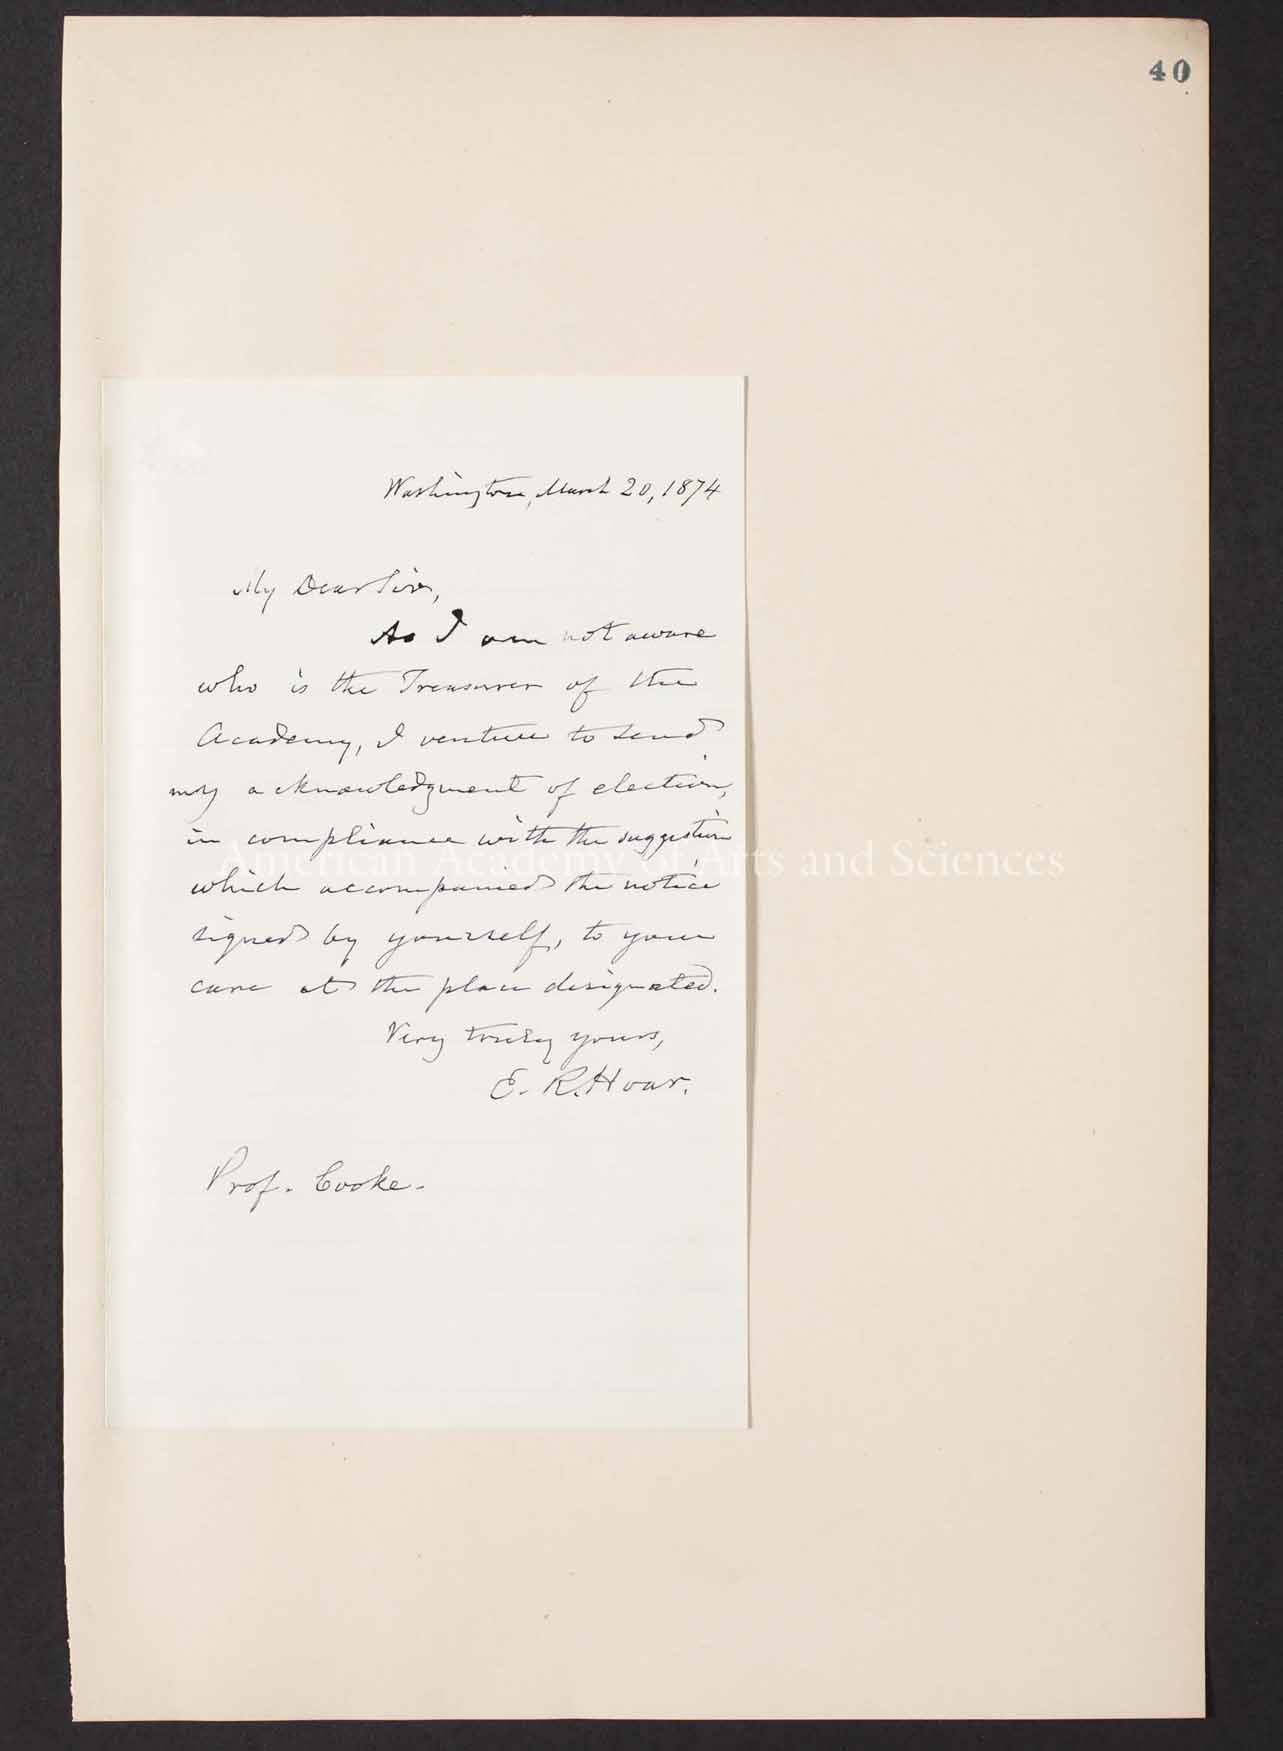 40
Washington, March 20, 1874
My Dear Sir,
As I am not aware
who is the Treasurer of the
Academy, I venture to send
my acknowledgment of election,
in compliance with the suggestion
American Academy of Arts and Sciences
which accompanied the notice
signed by yourself, to your
care at the place designated.
Very truly yours,
E. R. Hoar.
Prof. Cooke.